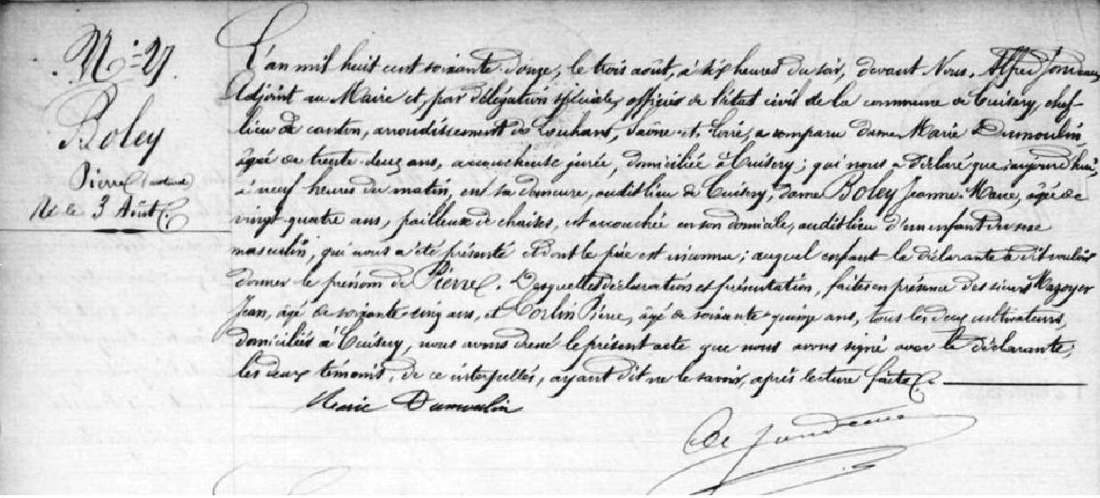 N° 27
Boley
Pierre
Né le 3 Août
L'an mil huit cent soixante-douze, le trois août, à six heures du soir, devant Nous, Alfred
Adjoint au Maire et, par délégation spéciale, officier de l'état civil de la commune de Cuisery, chef-
lieu de canton, arrondissement de Louhans, Saône-et-Loire, a comparu dame Marie Dumoulin
âgée de trente-deux ans, accoucheuse jurée, domiciliée à Cuisery; qui nous a déclaré que aujourd'hui,
à neuf heures du matin, en sa demeure, audit lieu de Cuisery, dame Boley Jeanne-Marie, âgée de
vingt-quatre ans, pailleuse de chaises, est accouchée en son domicile, audit lieu d'un enfant du sexe
masculin, qui nous a été présenté et dont le père est inconnu; auquel enfant la déclarante a dit vouloir
donner le prénom de Pierre. Desquelles déclaration et présentation, faites en présence des sieurs Mazoyer
Jean, âgé de soixante-cinq ans, et Corlin Pierre, âgé de soixante-quinze ans, tous les deux cultivateurs,
domiciliés à Cuisery, nous avons dressé le présent acte que nous avons signé avec la déclarante,
les deux témoins, de ce interpellés, ayant dit ne le savoir, après lecture faite.
Marie Dumoulin